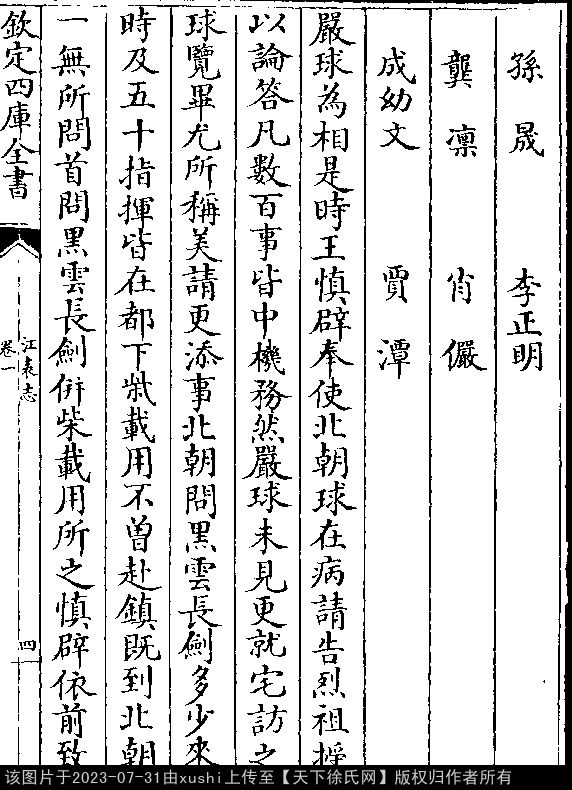 孫晟　李正明
龔凛　肖儼
成幼文　賈潭
嚴球為相是時王慎辟奉使北朝球在病請告烈祖授
以論答凡數百事皆中機務然嚴球未見更就宅訪之
球覽畢尤所稱美請更添事北朝問黑雲長劍多少來
時及五十指揮皆在都下柴載用不曾赴鎮既到北朝
一無所問首問黑雲長劍併柴載用所之慎辟依前致
欽定四庫全書
江表志
卷一
四
该图片于2023-07-31由xushi上传至【天下徐氏网】版权归作者所有